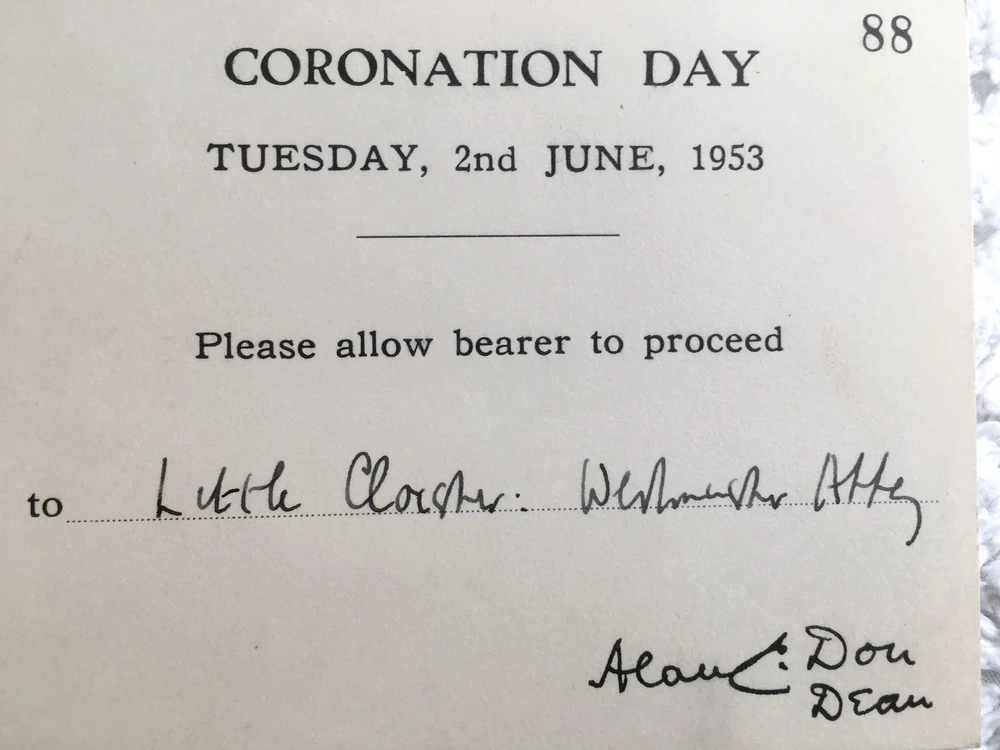 88
CORONATION DAY
TUESDAY, 2nd JUNE, 1953
Please allow bearer to proceed
to Little Cloister: Westminster Abbey
Alan C. Don
Dean